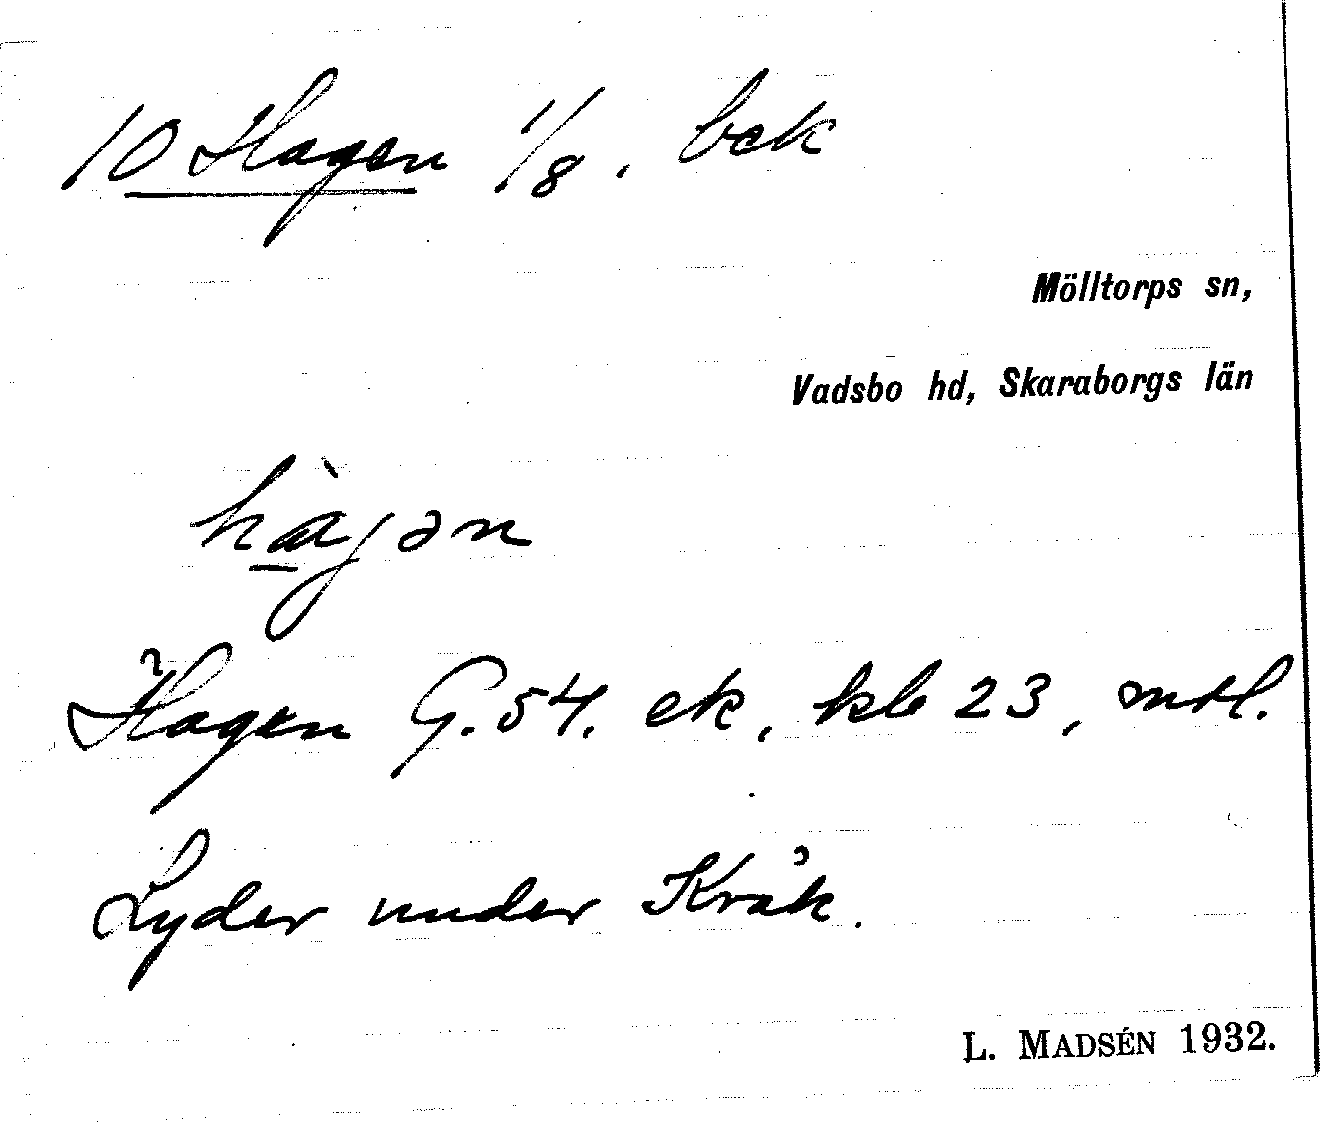 10 Hagen 1/8. bek
Mölltorps sn,
Vadsbo hd, Skaraborgs län
hàgən
Hagen G.54. ek, kb 23, mtl.
Lyder under Kråk.
L. MADSÉN 1932.